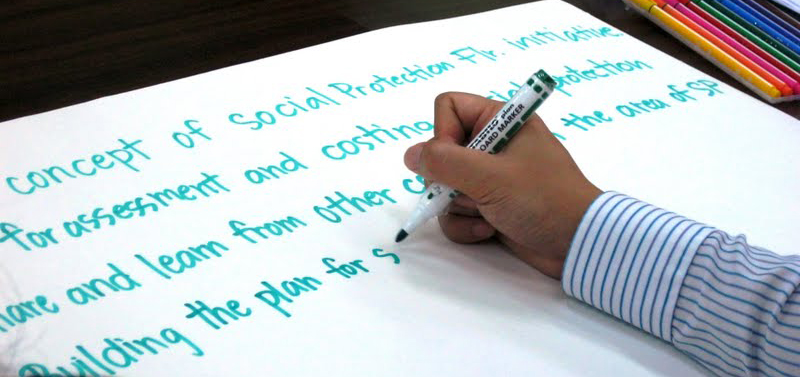 concept of Social Protection Flr. initiative
for assessment and costing protection
hare and learn from other the area of SP
Building the plan for S
BOARD MARKER